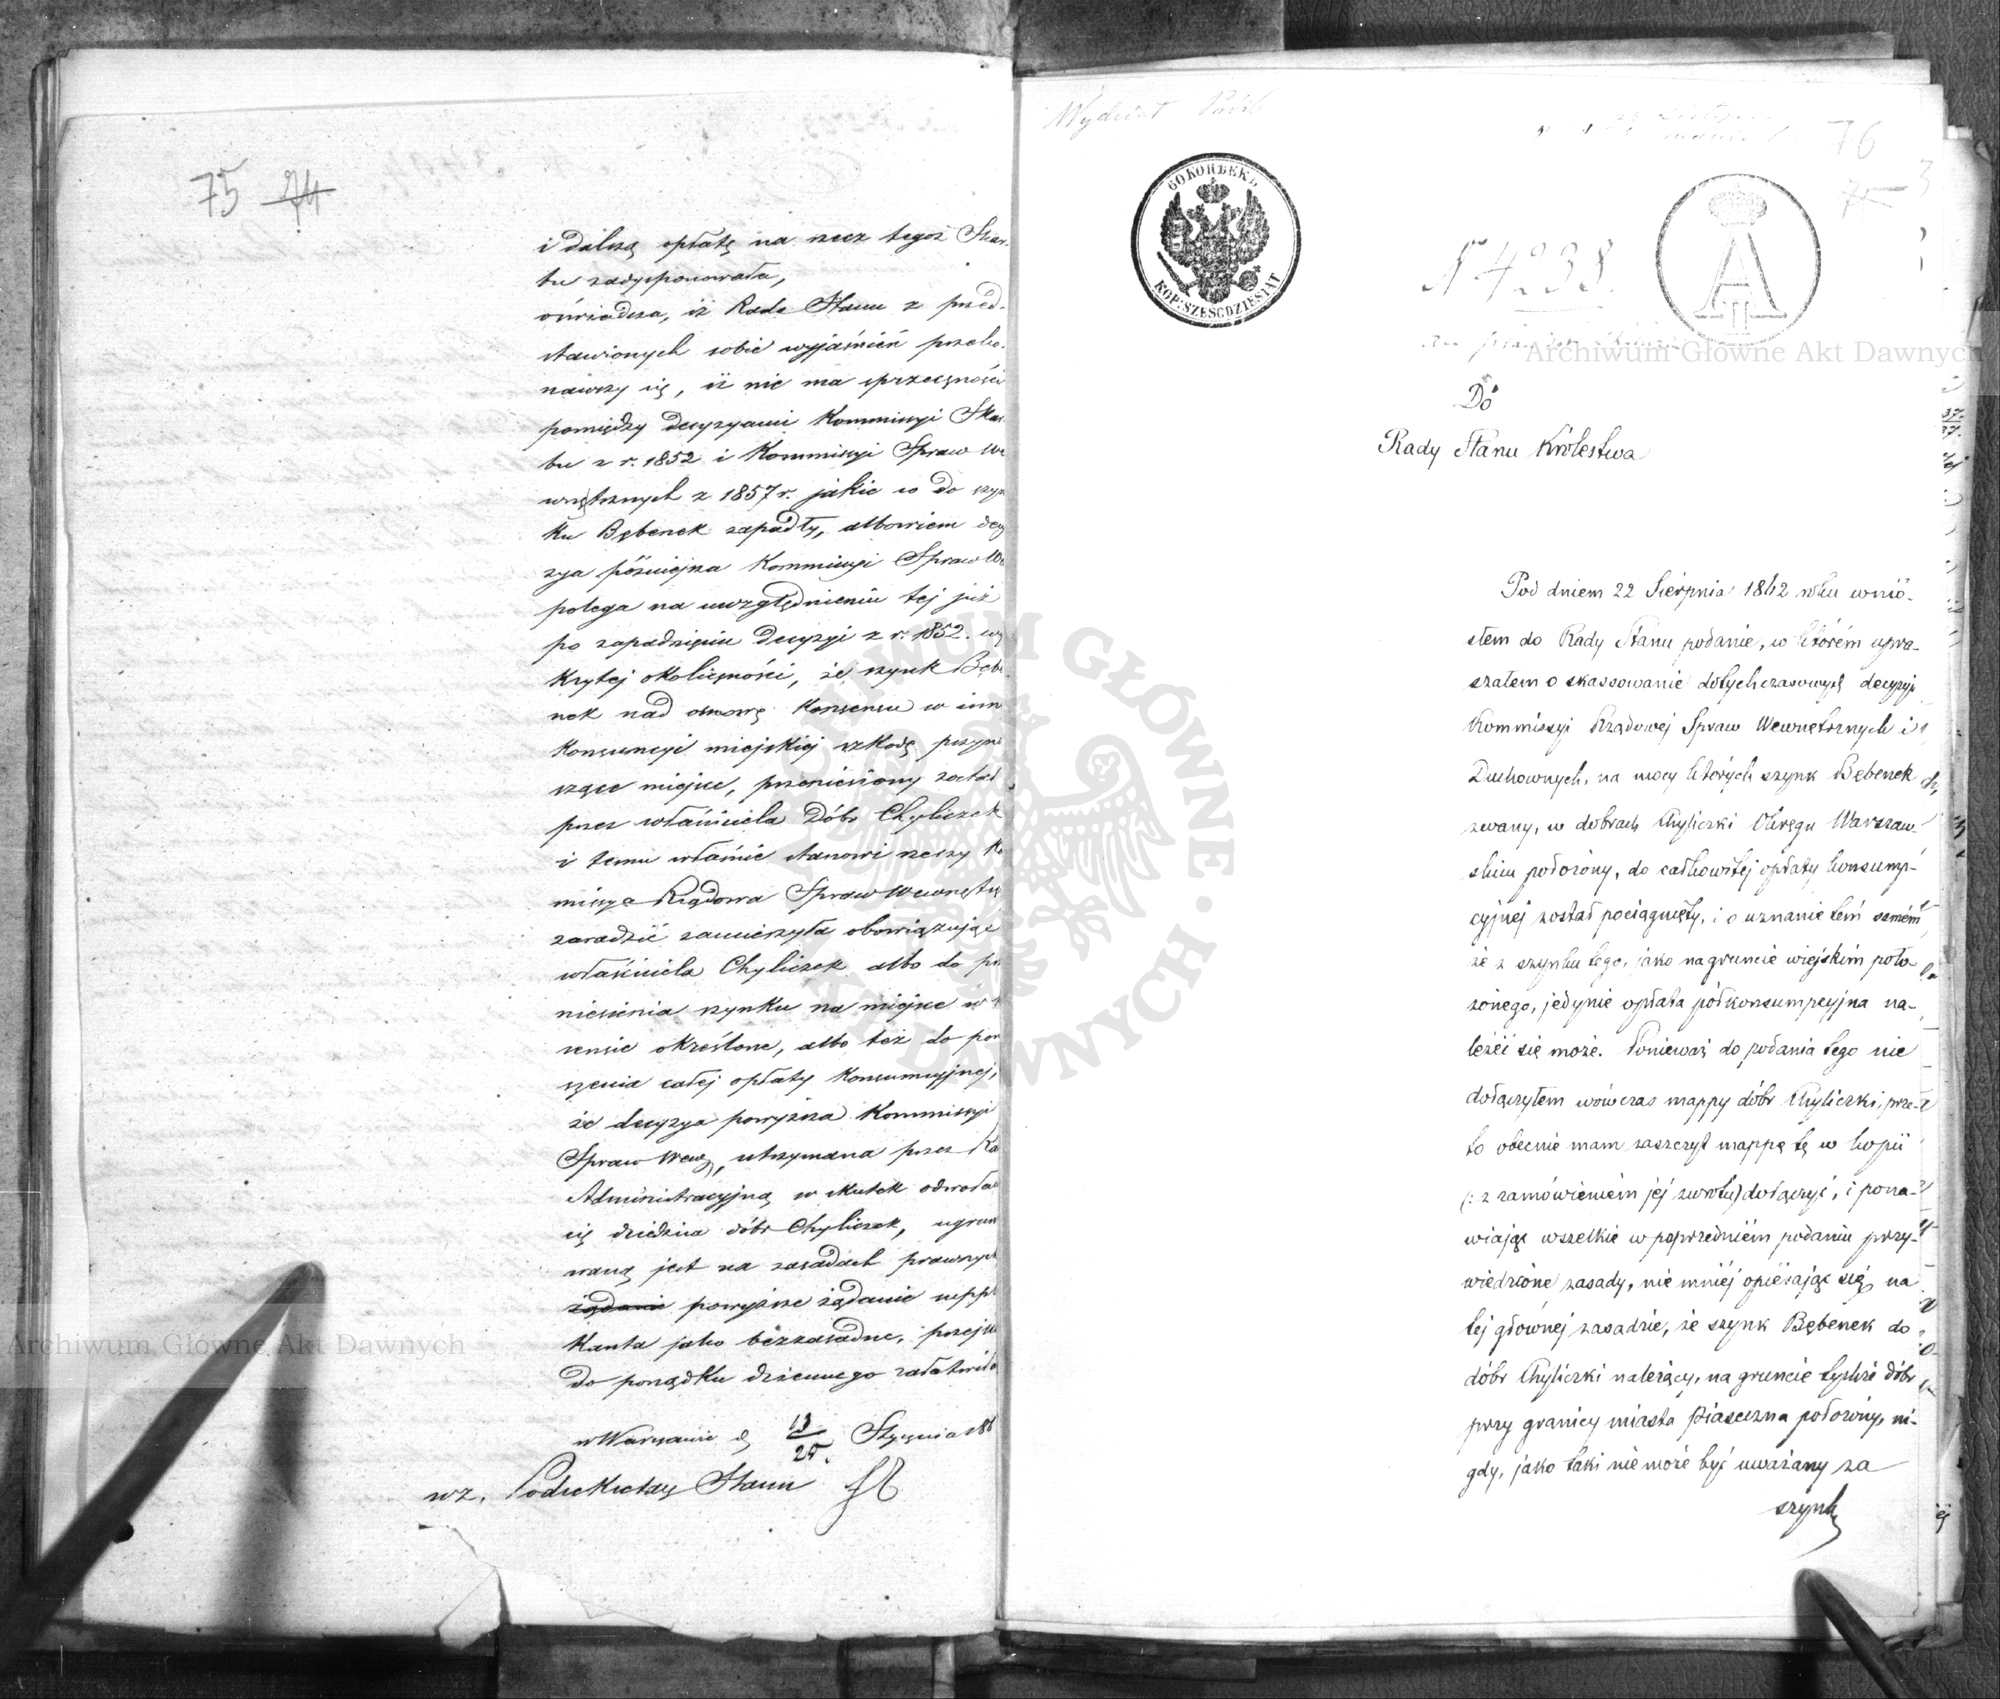 75 74
i dalszą opłatę na rzecz tegoż Skar-
bu zadysponowała,
oświadcza, iż Rada Stanu z przed-
stawionych sobie wyjaśnień przeko-
nawszy się, iż nie ma sprzeczności
pomiędzy decyzyami Kommissyi Skar-
bu z r. 1852 i Kommissyi Spraw We
wnętrznych z 1857 r. jakie co do szyn
ku Bębenek zapadły, albowiem decy
zya późniejsza Kommissyi Spraw We
polega na uwzględnieniu tej już
po zapadnięciu decyzyi z r. 1852. wy
krytej okoliczności, że szynk Bębe
nek nad osnowę Konsensu w inn
Konsumcyi miejskiej szkodę przyno
szące miejsce, przeniesiony został
przez właściciela Dóbr Chyliczek
i temu właśnie stanowi rzeczy Ko
missya Rządowa Spraw Wewnętrz
zaradzić zamierzyła obowiązując
właściciela Chyliczek albo do prze
niesienia szynku na miejsce w
sensie określone, albo też do pono
szenia całej opłaty Konsumcyjnej,
że decyzya powyższa Kommissyi
Spraw Wew, utrzymana przez Ra
Administracyjną w skutek odwoła
się dziedzica dóbr Chyliczek, ugrun
waną jest na zasadach prawnych
żądanie powyższe żądanie suppl
kanta jako bezzasadne, przejś
do porządku dziennego załatwiła
w Warszawie d 13/25. Stycznia 186
wz. Podsekretarz Stanu
Wydział Próśb
76
60 KOPѢЕКЪ
KOP: SZEŚĆDZIESIĄT
A II
N 4238.
Do
Rady Stanu Królestwa
Pod dniem 22 Sierpnia 1862 roku wnio-
słem do Rady Stanu podanie, w którém upra-
szałem o skassowanie dotychczasowych decyzyi
Kommissyi Rządowej Spraw Wewnętrznych i
Duchownych, na mocy których szynk Bębenek
zwany, w dobrach Chyliczki Okręgu Warszaw-
skim położony, do całkowitej opłaty konsump-
cyjnej został pociągnięty, i o uznanie tém samém
że z szynku tego, jako na gruncie wiejskim poło-
żonego, jedynie opłata półkonsumpcyjna na-
leżeć się może. Ponieważ do podania tego nie
dołączyłem wówczas mappy dóbr Chyliczki, prze-
to obecnie mam zaszczyt mappę tę w kopii
(: z zamówieniem jej zwrotu) dołączyć, i pona-
wiając wszelkie w poprzedniém podaniu przy-
wiedzione zasady, nie mniéj opiérając się na
tej głównej zasadzie, że szynk Bębenek do
dóbr Chyliczki należący, na gruncie tychże dóbr
przy granicy miasta Piaseczna położony, ni-
gdy, jako taki nie może być uważany za
szynk
Archiwum Główne Akt Dawnych
Archiwum Główne Akt Dawnych
ARCHIWUM GŁÓWNE AKT DAWNYCH